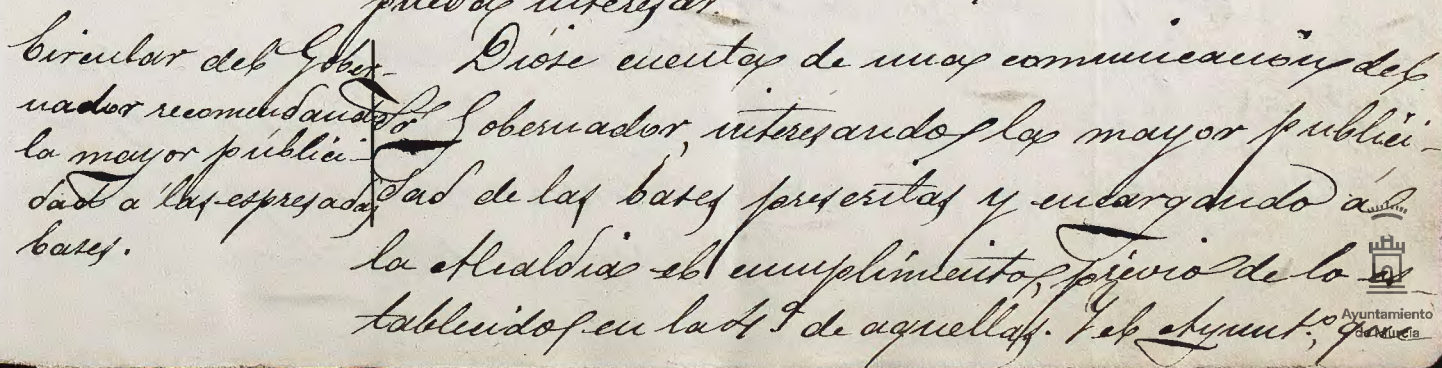 pueda interesar.
Circular del Gober-
nador recomendando
la mayor publici-
dad a las espresadas
bases.
Diose cuenta de una comunicación del
Sr Gobernador, interesando la mayor publici-
dad de las bases prescritas y encargando á
la Alcaldia el cumplimiento previo de lo es-
tablecido en la 4ª de aquellas. Y el Ayuntº, que
Ayuntamiento
de Murcia